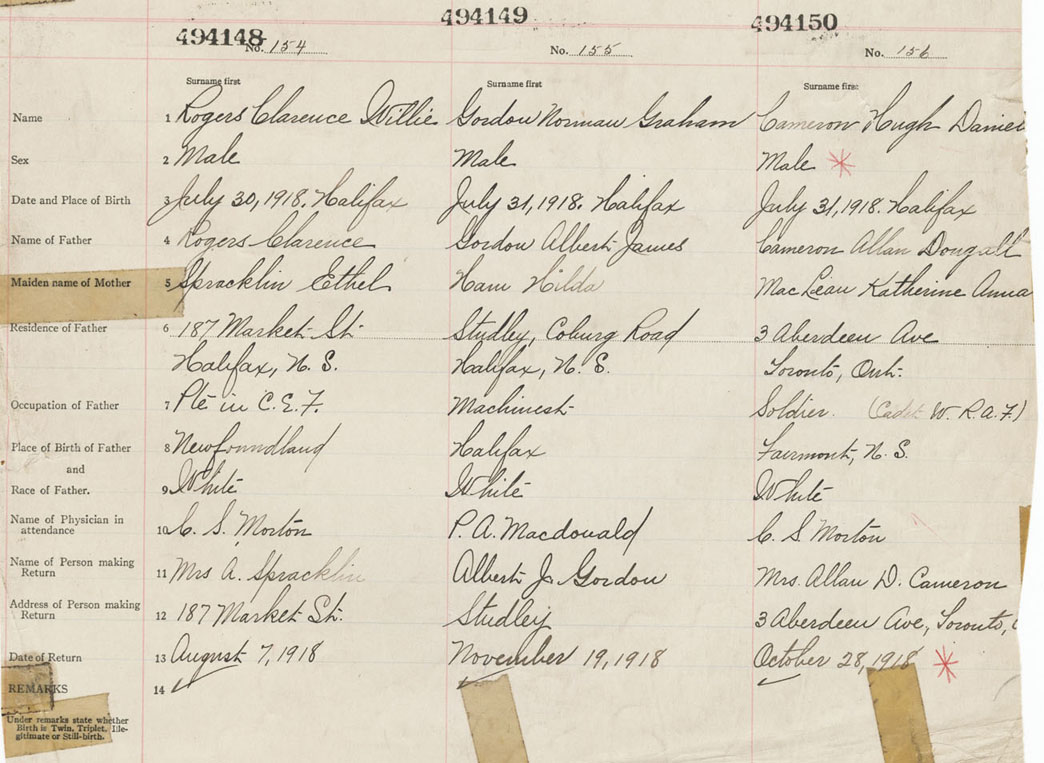 494148 494149 494150
No. 154 No. 155 No. 156
Surname first Surname first Surname first
Name 1 Rogers Clarence Willie Gordon Norman Graham Cameron Hugh Daniel
Sex 2 Male Male Male *
Date and Place of Birth 3 July 30, 1918. Halifax July 31, 1918. Halifax July 31, 1918. Halifax
Name of Father 4 Rogers Clarence Gordon Albert James Cameron Allan Dougall
Maiden name of Mother 5 Spracklin Ethel Ham Hilda MacLean Katherine Anna
Residence of Father 6 187 Market St. Studley, Coburg Road 3 Aberdeen Ave
Halifax, N. S. Halifax, N. S. Toronto, Ont.
Occupation of Father 7 Pte in C.E.F. Machinest Soldier. (Cadet W. R. A. F.)
Place of Birth of Father 8 Newfoundland Halifax Fairmont, N. S.
and
Race of Father. 9 White White White
Name of Physician in attendance 10 C. S. Morton P. A. Macdonald C. S. Morton
Name of Person making Return 11 Mrs A. Spracklin Albert J. Gordon Mrs. Allan D. Cameron
Address of Person making Return 12 187 Market St. Studley 3 Aberdeen Ave, Toronto,
Date of Return 13 August 7, 1918 November 19, 1918 October 28, 1918 *
REMARKS 14
Under remarks state whether
Birth is Twin, Triplet, Ille-
gitimate or Still-birth.